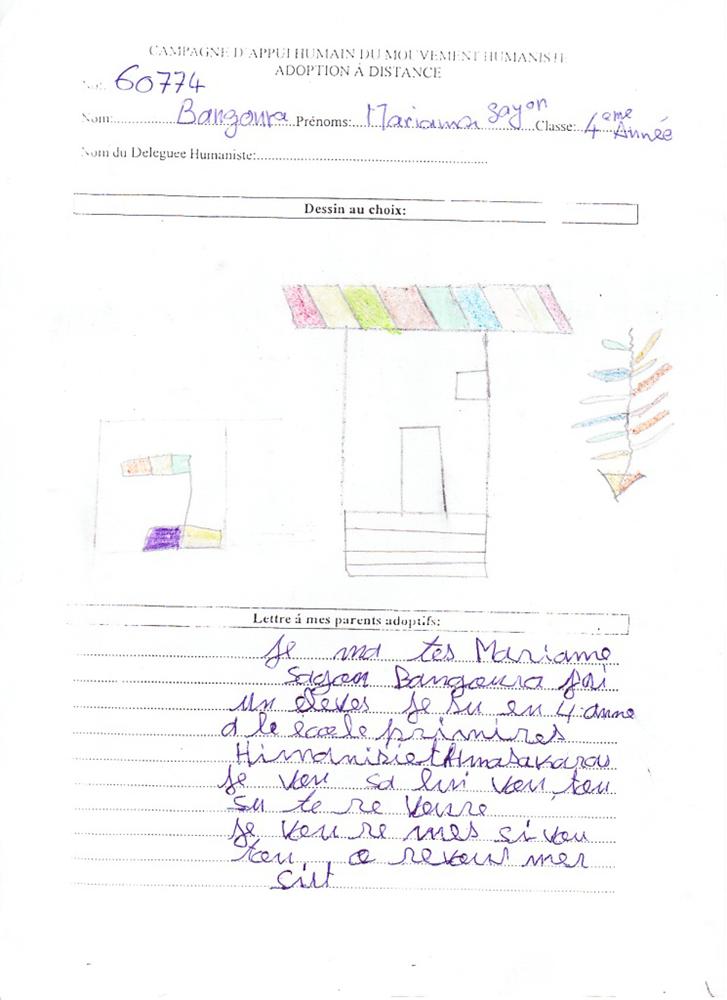 CAMPAGNE D'APPUI HUMAIN DU MOUVEMENT HUMANISTE
ADOPTION À DISTANCE
No: 60774
Nom: Bangoura Prénoms: Mariama Sayon Classe: 4eme Année
Nom du Deleguee Humaniste:
Dessin au choix:
Lettre á mes parents adoptifs:
Je ma tes Mariame
Sayon Bangoura
un eleves je su en 4 anne
d le école primires
je vou sa lui vou tou
su te re voure
je vou re mes si vou
tou a revour mer